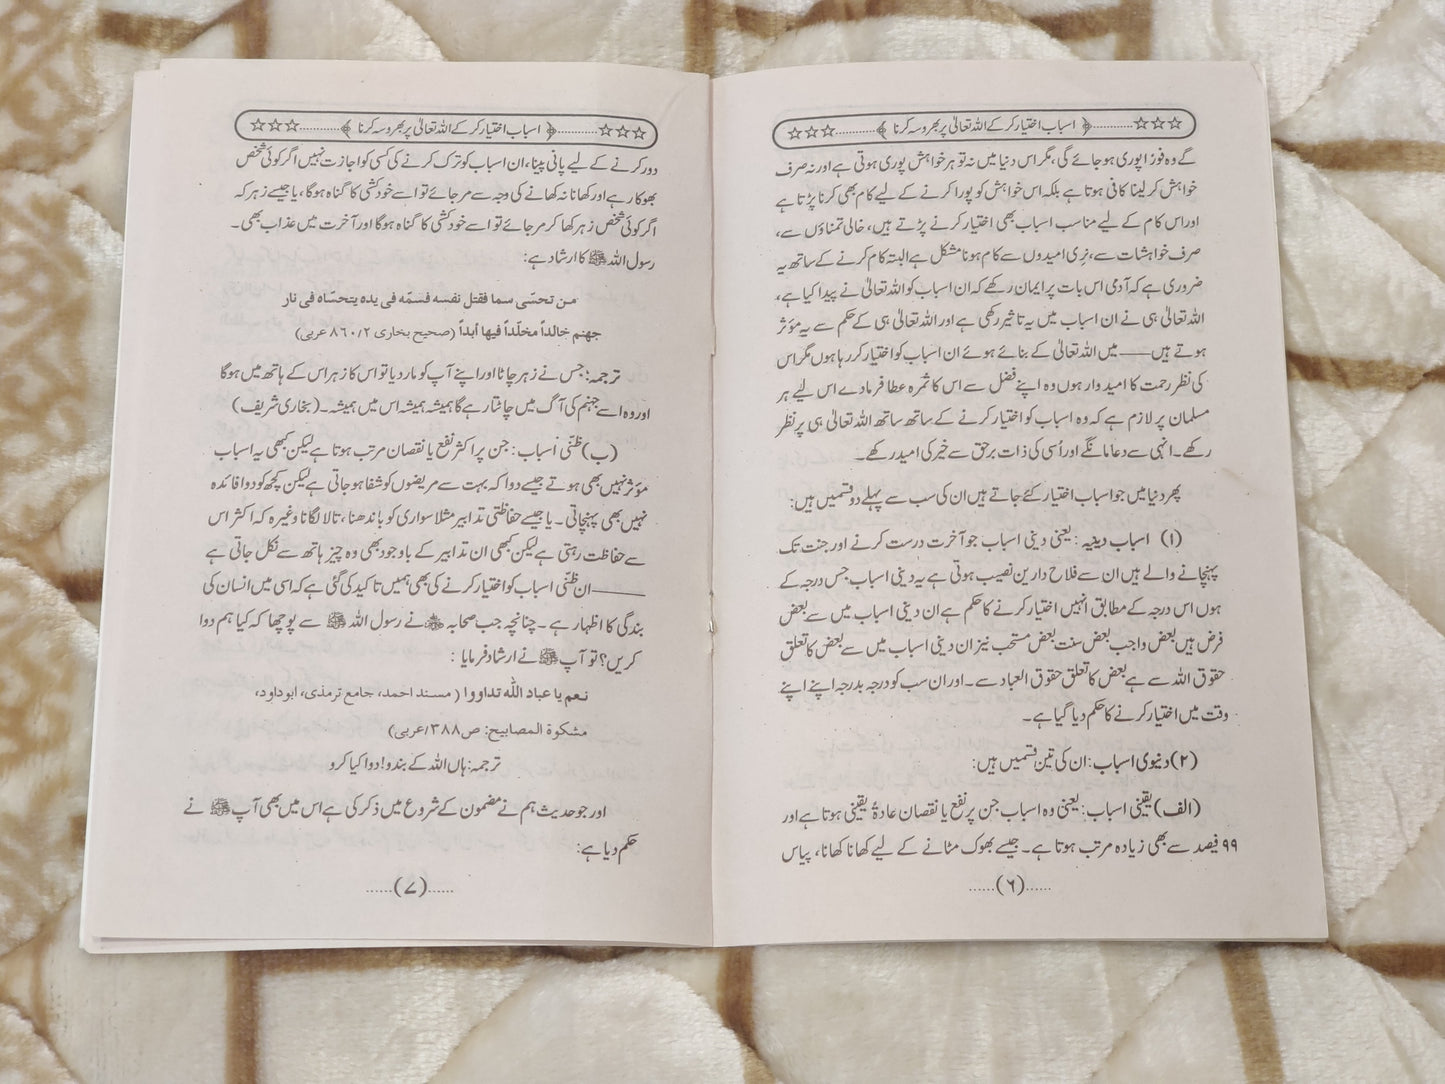 ☆☆☆............﴿ اسباب اختیار کر کے اللہ تعالیٰ پر بھروسہ کرنا ﴾............☆☆☆
گے وہ فوراً پوری ہو جائے گی، مگر اس دنیا میں نہ تو ہر خواہش پوری ہوتی ہے اور نہ صرف
خواہش کر لینا کافی ہوتا ہے بلکہ اس خواہش کو پورا کرنے کے لیے کام بھی کرنا پڑتا ہے
اور اس کام کے لیے مناسب اسباب بھی اختیار کرنے پڑتے ہیں، خالی تمناؤں سے،
صرف خواہشات سے، نری امیدوں سے کام ہونا مشکل ہے البتہ کام کرنے کے ساتھ یہ
ضروری ہے کہ آدمی اس بات پر ایمان رکھے کہ ان اسباب کو اللہ تعالیٰ نے پیدا کیا ہے،
اللہ تعالیٰ ہی نے ان اسباب میں یہ تاثیر رکھی ہے اور اللہ تعالیٰ ہی کے حکم سے یہ مؤثر
ہوتے ہیں ــــــ میں اللہ تعالیٰ کے بنائے ہوئے ان اسباب کو اختیار کر رہا ہوں مگر اس
کی نظر رحمت کا امیدوار ہوں وہ اپنے فضل سے اس کا ثمرہ عطا فرما دے اس لیے ہر
مسلمان پر لازم ہے کہ وہ اسباب کو اختیار کرنے کے ساتھ ساتھ اللہ تعالیٰ ہی پر نظر
رکھے۔ انہی سے دعا مانگے اور اُسی کی ذات برحق سے خیر کی امید رکھے۔
پھر دنیا میں جو اسباب اختیار کئے جاتے ہیں ان کی سب سے پہلے دو قسمیں ہیں:
(۱) اسباب دینیہ : یعنی دینی اسباب جو آخرت درست کرنے اور جنت تک
پہنچانے والے ہیں ان سے فلاح دارین نصیب ہوتی ہے یہ دینی اسباب جس درجہ کے
ہوں اس درجہ کے مطابق انہیں اختیار کرنے کا حکم ہے ان دینی اسباب میں سے بعض
فرض ہیں بعض واجب بعض سنت بعض مستحب نیز ان دینی اسباب میں سے بعض کا تعلق
حقوق اللہ سے ہے بعض کا تعلق حقوق العباد سے۔ اور ان سب کو درجہ بدرجہ اپنے اپنے
وقت میں اختیار کرنے کا حکم دیا گیا ہے۔
(۲) دنیوی اسباب : ان کی تین قسمیں ہیں:
(الف) یقینی اسباب: یعنی وہ اسباب جن پر نفع یا نقصان عادۃً یقینی ہوتا ہے اور
۹۹ فیصد سے بھی زیادہ مرتب ہوتا ہے۔ جیسے بھوک مٹانے کے لیے کھانا کھانا، پیاس
......(۶)......
☆☆☆............﴿ اسباب اختیار کر کے اللہ تعالیٰ پر بھروسہ کرنا ﴾............☆☆☆
دور کرنے کے لیے پانی پینا، ان اسباب کو ترک کرنے کی کسی کو اجازت نہیں اگر کوئی شخص
بھوکا رہے اور کھانا نہ کھانے کی وجہ سے مر جائے تو اسے خودکشی کا گناہ ہوگا، یا جیسے زہر کہ
اگر کوئی شخص زہر کھا کر مر جائے تو اسے خودکشی کا گناہ ہوگا اور آخرت میں عذاب بھی۔
رسول اللہ ﷺ کا ارشاد ہے:
من تحسّی سما فقتل نفسه فسمّه فی یده یتحسّاه فی نار
جهنم خالداً مخلّداً فیها أبداً (صحیح بخاری ۸۶۰/۲ عربی)
ترجمہ: جس نے زہر چاٹا اور اپنے آپ کو مار دیا تو اس کا زہر اس کے ہاتھ میں ہوگا
اور وہ اسے جہنم کی آگ میں چاٹتا رہے گا ہمیشہ ہمیشہ اس میں ہمیشہ۔ (بخاری شریف)
(ب) ظنّی اسباب: جن پر اکثر نفع یا نقصان مرتب ہوتا ہے لیکن کبھی یہ اسباب
مؤثر نہیں بھی ہوتے جیسے دوا کہ بہت سے مریضوں کو شفا ہو جاتی ہے لیکن کچھ کو دوا فائدہ
نہیں بھی پہنچاتی۔ یا جیسے حفاظتی تدابیر مثلا سواری کو باندھنا، تالا لگانا وغیرہ کہ اکثر اس
سے حفاظت رہتی ہے لیکن کبھی ان تدابیر کے باوجود بھی وہ چیز ہاتھ سے نکل جاتی ہے
ــــــــــ ان ظنّی اسباب کو اختیار کرنے کی بھی ہمیں تاکید کی گئی ہے کہ اسی میں انسان کی
بندگی کا اظہار ہے۔ چنانچہ جب صحابہ ؓ نے رسول اللہ ﷺ سے پوچھا کہ کیا ہم دوا
کریں؟ تو آپ ﷺ نے ارشاد فرمایا :
نعم یا عباد اللّٰه تداووا ( مسند احمد، جامع ترمذی، ابو داود،
مشکوة المصابیح: ص ۳۸۸/عربی)
ترجمہ: ہاں اللہ کے بندو! دوا کیا کرو
اور جو حدیث ہم نے مضمون کے شروع میں ذکر کی ہے اس میں بھی آپ ﷺ نے
حکم دیا ہے:
......(۷)......